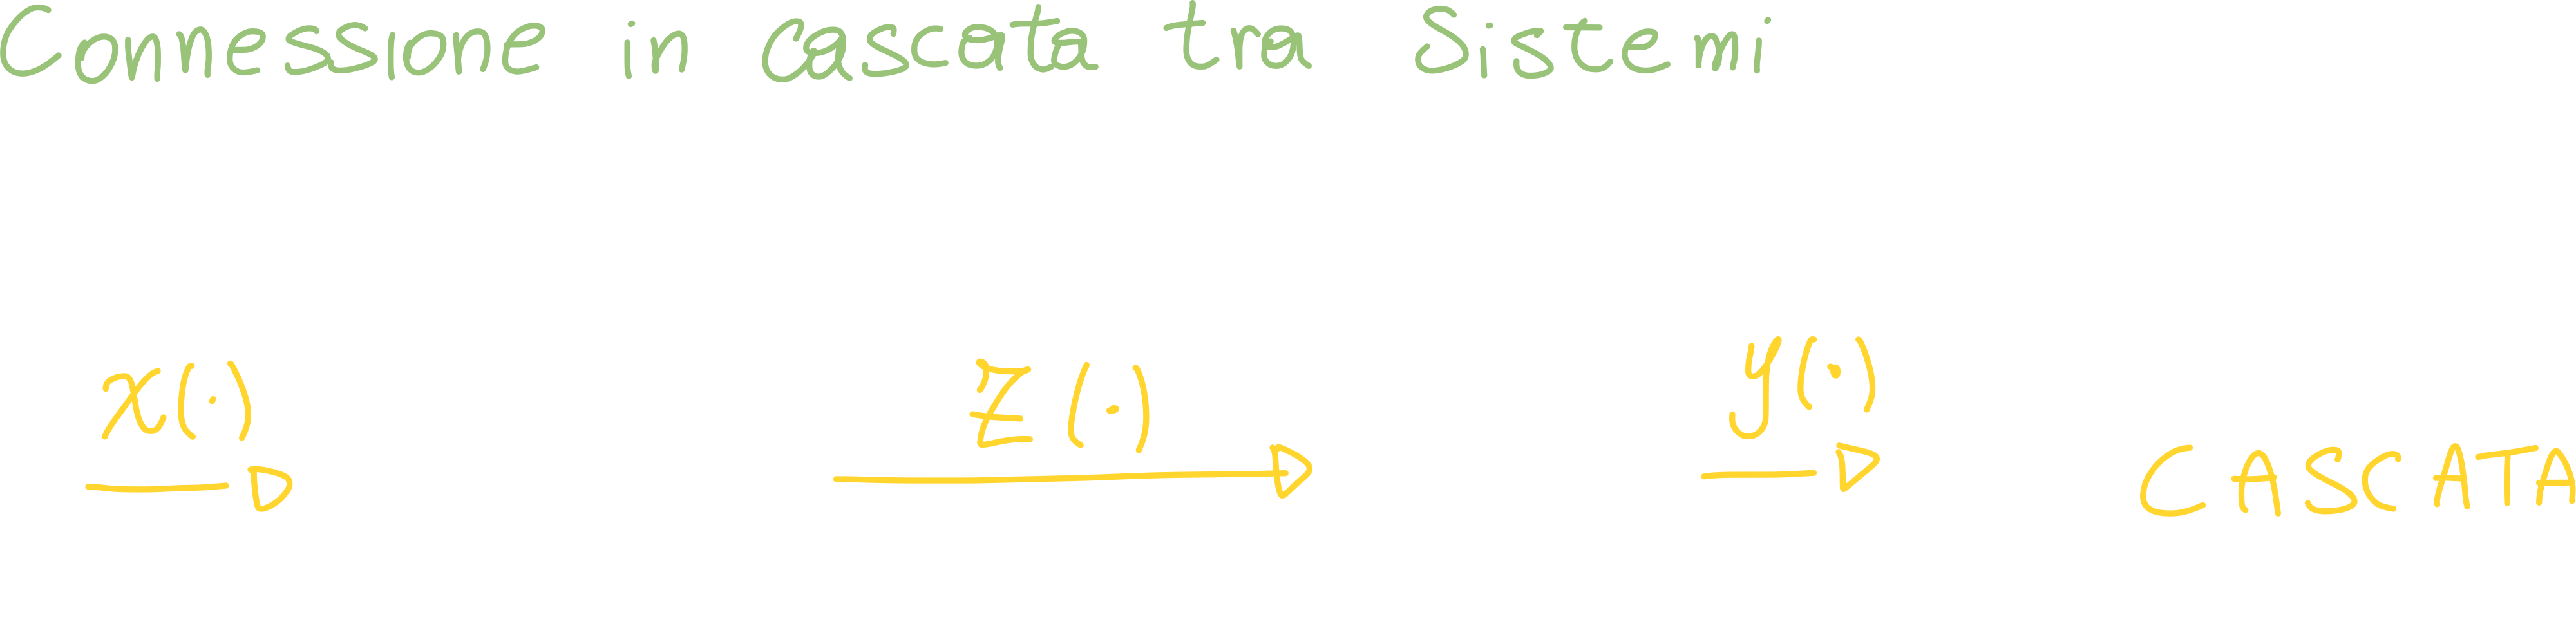 Connessione in cascata tra Sistemi
x(·) z(·) y(·) CASCATA